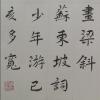 畫梁斜
蘇東坡詞
少年游己
亥冬寬